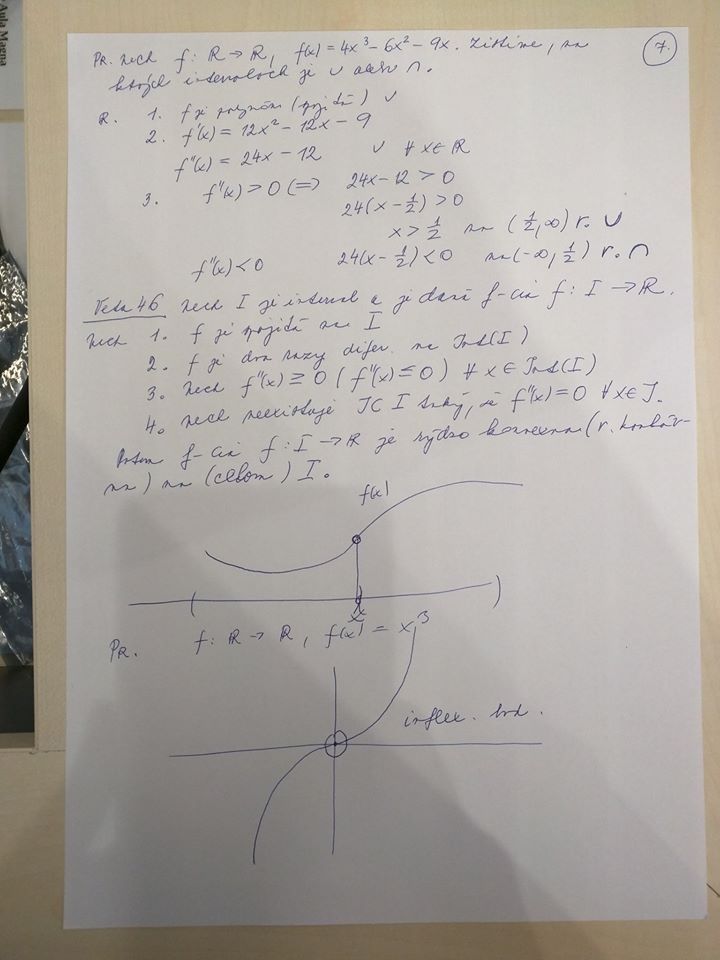 Aula Magna
7.
PR. Nech f: R → R, f(x) = 4x³ - 6x² - 9x. Zistime, na
ktorých intervaloch je ∪ alebo ∩.
R. 1. f je polynóm (spojitá) ∪
2. f'(x) = 12x² - 12x - 9
f''(x) = 24x - 12 ∪ ∀ x ∈ R
3. f''(x) > 0 (=) 24x - 12 > 0
24(x - 1/2) > 0
x > 1/2 na (1/2, ∞) r. ∪
f''(x) < 0 24(x - 1/2) < 0 na (-∞, 1/2) r. ∩
Veta 46 Nech I je interval a je daná f-cia f: I → R.
Nech 1. f je spojitá na I
2. f je dva razy difer. na Int(I)
3. Nech f''(x) ≥ 0 (f''(x) ≤ 0) ∀ x ∈ Int(I)
4. Nech neexistuje J ⊂ I taký, že f''(x) = 0 ∀ x ∈ J.
Potom f-cia f: I → R je rýdzo konvexná (r. konkáv-
na) na (celom) I.
f(x)
x
PR. f: R → R, f(x) = x³
inflex. bod.